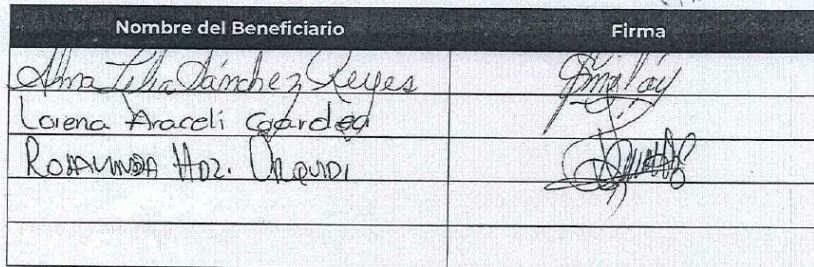 Nombre del Beneficiario Firma
Alma Lilia Sánchez Reyes
Lorena Araceli Gardea
ROSALINDA HDZ. URQUIDI